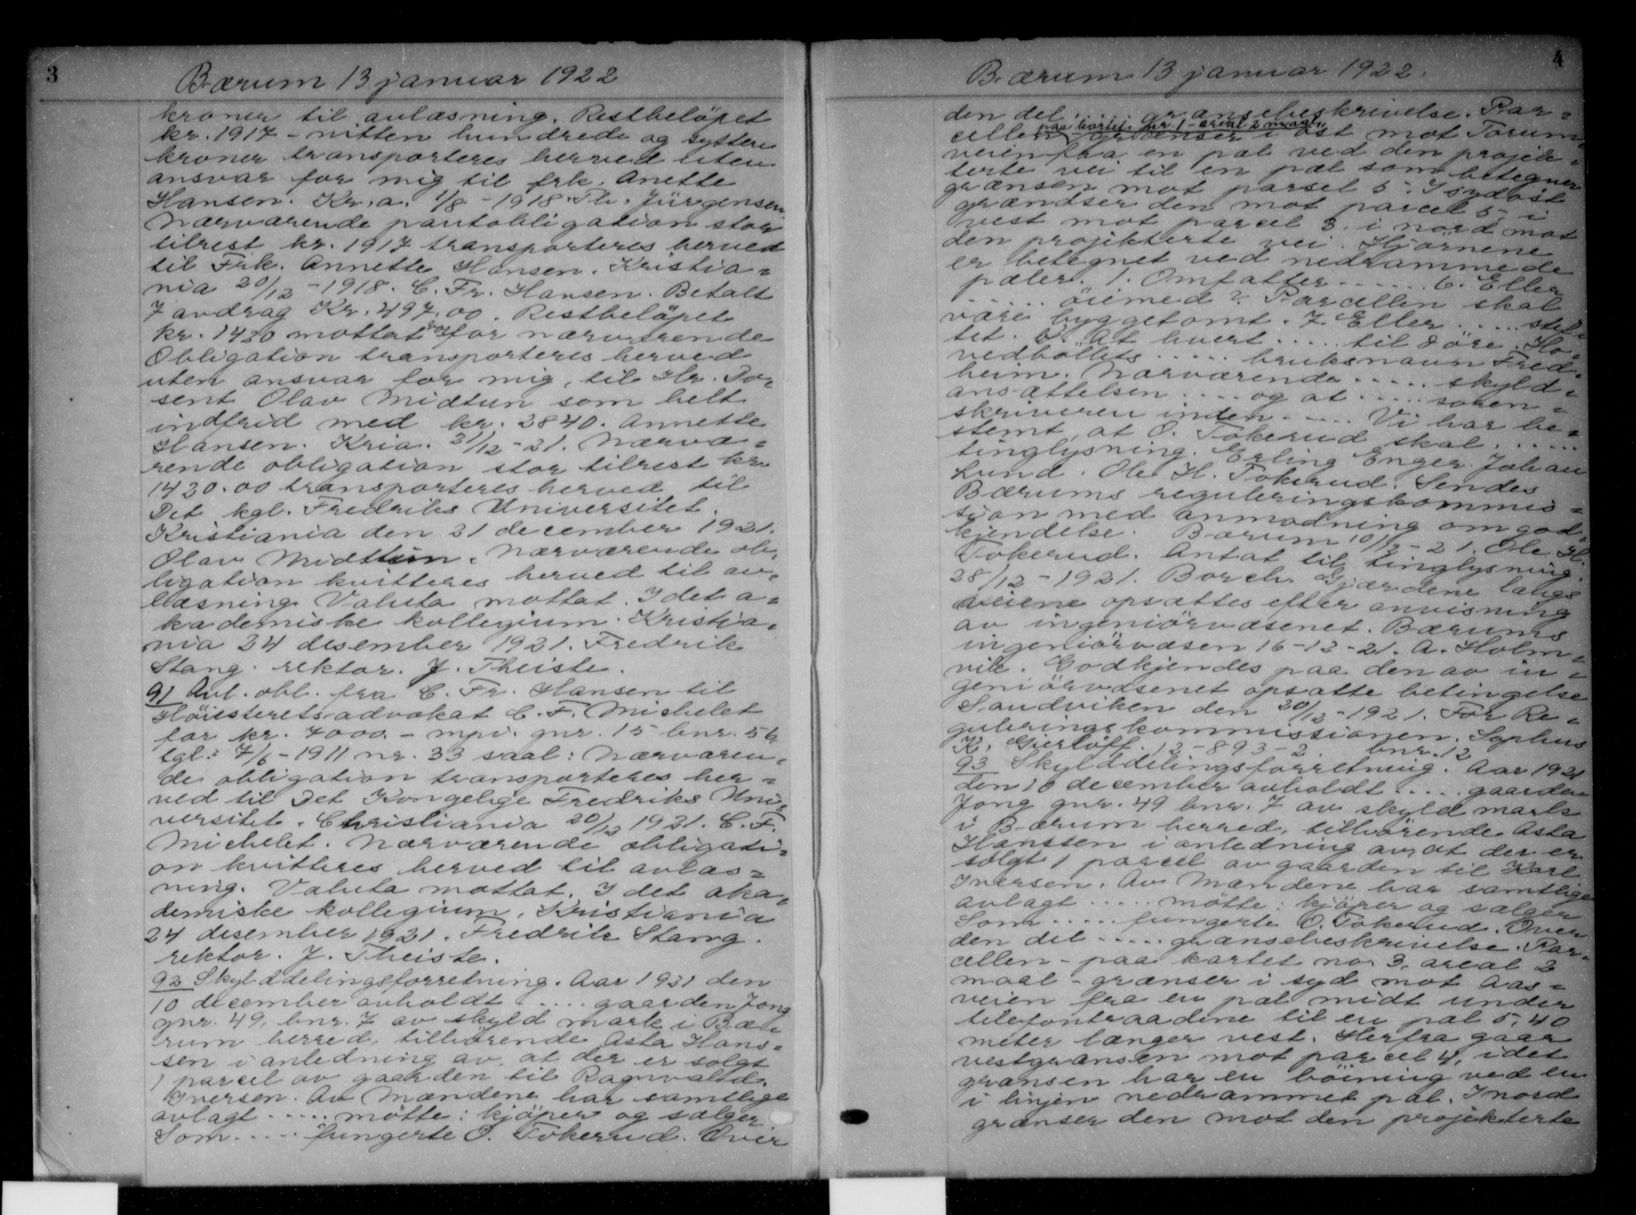 3
Bærum 13 januar 1922
kroner til avlæsning. Restbeløpet
kr. 1917 - nitten hundrede og sytten
kroner transporteres herved uten
ansvar for mig til frk. Anette
Hansen. Kr.a. 1/8 - 1918. Th. Jürgensen
Nærværende pantobligation stor
tilrest kr. 1917 transporteres herved
til Frk. Annette Hansen. Kristia=
nia 20/12 - 1918. C. Fr. Hansen. Betalt
7 avdrag Kr. 497,00. Restbeløpet
kr. 1420 mottat og for nærværende
Obligation transporteres herved
uten ansvar for mig, til Hr. Do=
sent Olav Midtun som helt
indfrid med kr. 2840. Annette
Hansen. Kria. 21/12 - 21. Nærvæ=
rende obligation stor tilrest kr.
1420.00 transporteres herved til
Det kgl. Fredriks Universitet.
Kristiania den 21 december 1921.
Olav Midttun. Nærværende ob=
ligation kvitteres herved til av=
læsning. Valuta mottat. I det a=
kademiske kollegium. Kristia=
nia 24 desember 1921. Fredrik
Stang. rektor. J. Theiste.
91 Avl. obl. fra C. Fr. Hansen til
Høiesteretsadvokat C. F. Michelet
for kr. 4000. - mpi. gnr. 15 bnr. 56
tgl: 7/6 - 1911 nr. 33 saal: Nærværen=
de obligation transporteres her=
ved til Det Kongelige Fredriks Uni=
versitet. Christiania 20/12 1921. C. F.
Michelet. Nærværende obligati=
on kvitteres herved til avlæs=
ning. Valuta mottat. I det aka=
demiske kollegium. Kristiania
24 desember 1921. Fredrik Stang.
rektor. J. Theiste.
92 Skylddelingsforretning. Aar 1921 den
10 december avholdt .... gaarden Jong
gnr. 49, bnr. 7 av skyld mark i Bæ=
rum herred, tilhørende Asta Hans=
sen i anledning av, at der er solgt
1 parcel av gaarden til Ragnvald
Iversen. Av Mændene har samtlige
avlagt ..... møtte: kjøper og sælger
Som ..... fungerte O. Tokerud. Over
4
Bærum 13 januar 1922.
den del ... grænsebeskrivelse. Par=
paa kartet nr 1 - areal 2 maal -
cellen grænser i øst mot Torum
veien fra en pæl ved den projek=
terte vei til en pæl som betegner
grænsen mot parsel 5. I sydøst
grændser den mot parcel 5 i
vest mot parcel 3, i nord mot
den projekterte vei. Hjørnene
er betegnet ved nedrammede
pæler. 1. Omfatter ...... 6. Eller
..... øiemed? Parcellen skal
være byggetomt. 7. Eller .... stif=
tet. 8. At hvert ..... til 8 øre. Ho=
vedbøllets ..... bruksnavn Fred=
heim. Nærværende ..... skyld=
ansættelsen .... og at ..... soren=
skriveren inden .... Vi har be=
stemt, at O. Tokerud skal .....
tinglysning. Erling Enger. Johan
Lund. Ole H. Tokerud. Sendes
Bærums reguleringskommis=
sion med anmodning om god=
kjendelse. Bærum 10/12 - 21. Ole H.
Tokerud. Antat til tinglysning.
28/12 - 1921. Borch. Gjærdene langs
veiene opsættes efter anvisning
av ingeniørvæsenet. Bærums
ingeniørvæsen 16-12-21. A. Holm=
vik. Godkjendes paa den av in=
geniørvæsenet opsatte betingelse
Sandviken den 20/12 - 1921. For Re=
guleringskommissionen. Sophus
K. Gierløff. 12-893-2. bnr. 12
93 Skylddelingsforretning. Aar 1921
den 10 december avholdt .... gaarden
Jong gnr. 49 bnr. 7 av skyld mark
i Bærum herred, tilhørende Asta
Hanssen i anledning av, at der er
solgt 1 parcel av gaarden til Karl
Iversen. Av Mændene har samtlige
avlagt .... møtte: kjøper og sælger
Som ..... fungerte O. Tokerud. Over
den del ..... grænsebeskrivelse. Par=
cellen - paa kartet no 3, areal 2
maal - grænser i syd mot Aas=
veien fra en pæl midt under
telefontraadene til en pæl 5,40
meter længer vest. Herfra gaar
vestgrænsen mot parcel 4, idet
grænsen har en bøining ved en
i linjen nedrammet pæl. I nord
grænser den mot den projekterte